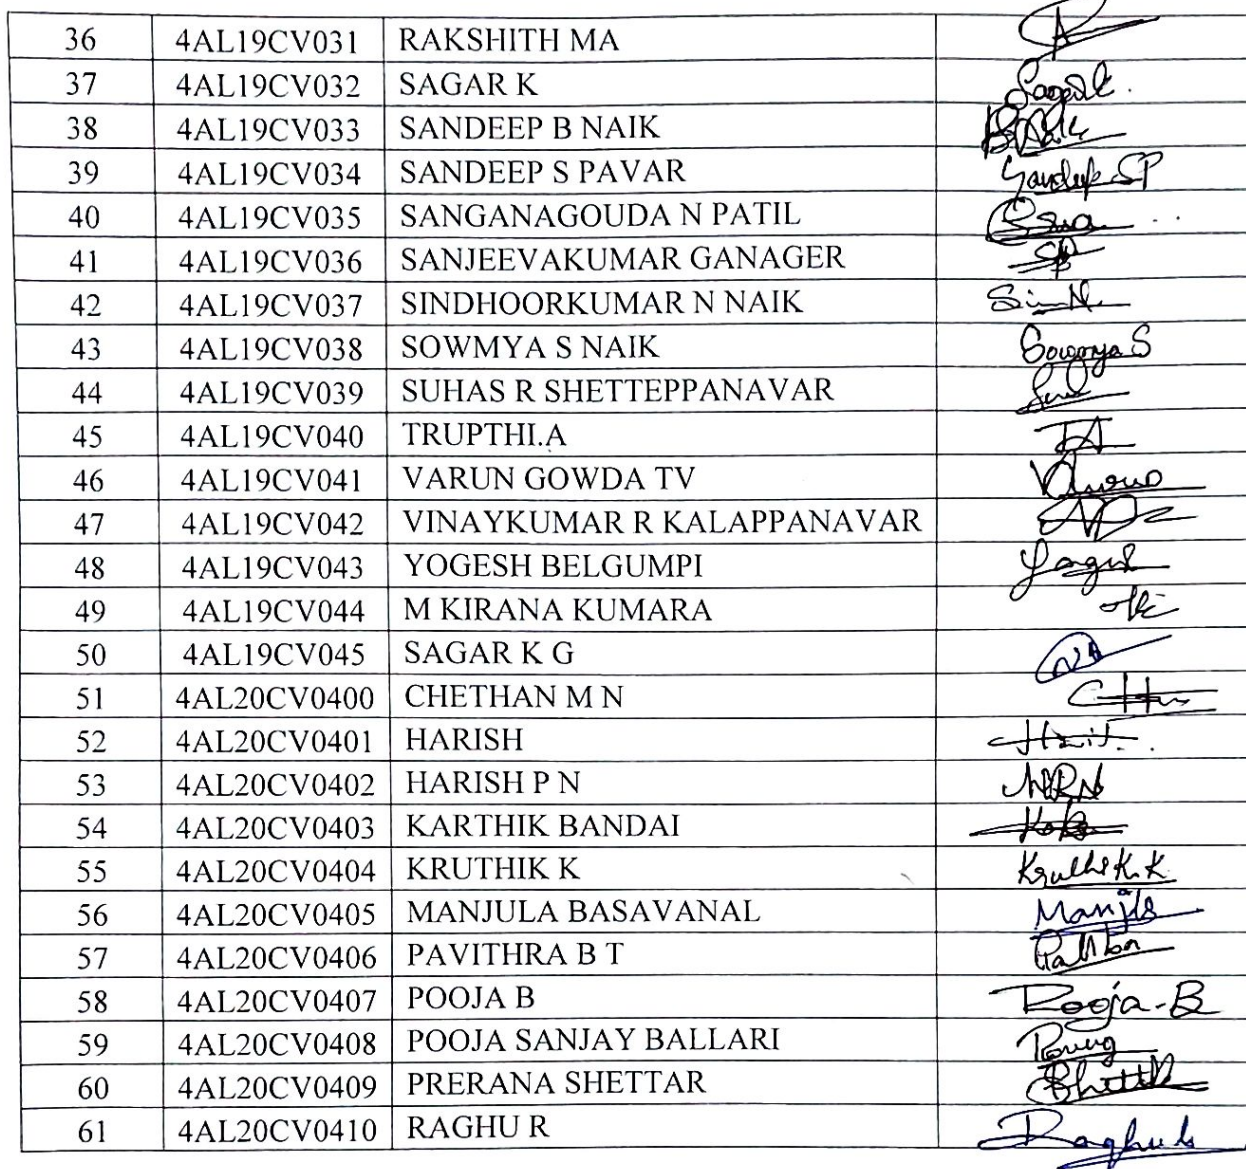 36 4AL19CV031 RAKSHITH MA
37 4AL19CV032 SAGAR K Sagar K.
38 4AL19CV033 SANDEEP B NAIK
39 4AL19CV034 SANDEEP S PAVAR Sandeep SP
40 4AL19CV035 SANGANAGOUDA N PATIL
41 4AL19CV036 SANJEEVAKUMAR GANAGER
42 4AL19CV037 SINDHOORKUMAR N NAIK
43 4AL19CV038 SOWMYA S NAIK Sowmya S
44 4AL19CV039 SUHAS R SHETTEPPANAVAR
45 4AL19CV040 TRUPTHI.A TA
46 4AL19CV041 VARUN GOWDA TV
47 4AL19CV042 VINAYKUMAR R KALAPPANAVAR
48 4AL19CV043 YOGESH BELGUMPI
49 4AL19CV044 M KIRANA KUMARA
50 4AL19CV045 SAGAR K G
51 4AL20CV0400 CHETHAN M N
52 4AL20CV0401 HARISH
53 4AL20CV0402 HARISH P N
54 4AL20CV0403 KARTHIK BANDAI
55 4AL20CV0404 KRUTHIK K Kruthik.K
56 4AL20CV0405 MANJULA BASAVANAL
57 4AL20CV0406 PAVITHRA B T
58 4AL20CV0407 POOJA B Pooja-B
59 4AL20CV0408 POOJA SANJAY BALLARI
60 4AL20CV0409 PRERANA SHETTAR
61 4AL20CV0410 RAGHU R